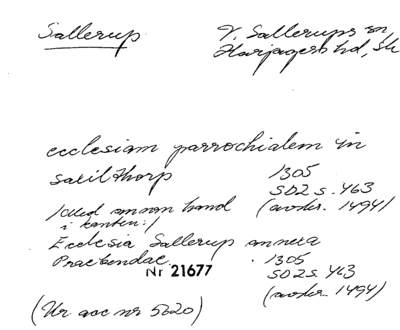 Sallerup
V. Sallerups sn,
Harjagers hd, Sk
ecclesiam parrochialem in
saxilthorp
1305
SD2 s. 463
(avskr. 1494)
/:Med annan hand
i kanten:/
Ecclesia Sallerup annexa
Praebendae.
1305
SD2 s. 463
(avskr. 1494)
Nr 21677
(Ur acc nr 5620)